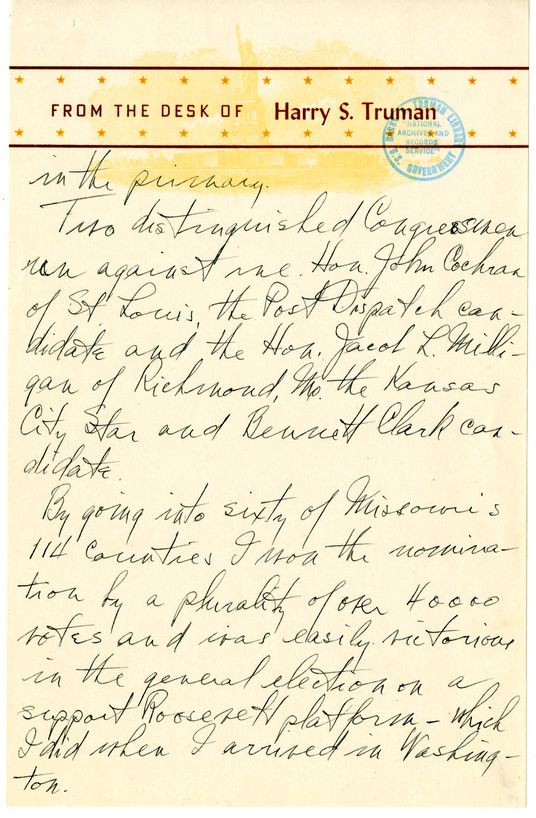 FROM THE DESK OF Harry S. Truman
HARRY S. TRUMAN LIBRARY
"NATIONAL
ARCHIVES AND
RECORDS
SERVICE"
U.S. GOVERNMENT
in the primary.
Two distinguished Congressmen
ran against me. Hon. John Cochran
of St Louis, the Post Dispatch can-
didate and the Hon. Jacob L. Milli-
gan of Richmond, Mo. the Kansas
City Star and Bennett Clark can-
didate.
By going into sixty of Missouri's
114 counties I won the nomina-
tion by a plurality of over 40000
votes and was easily victorious
in the general election on a
support Roosevelt platform - which
I did when I arrived in Washing-
ton.